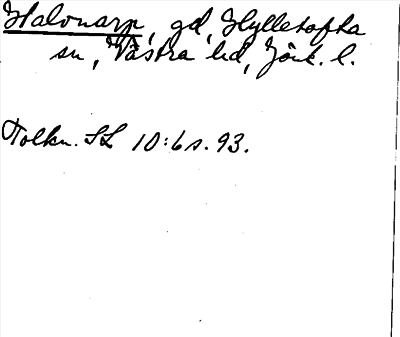 Halvnarp, gd, Hylletofta
sn, Västra hd, Jönk. l.
Tolkn. SL 10:6 s. 93.